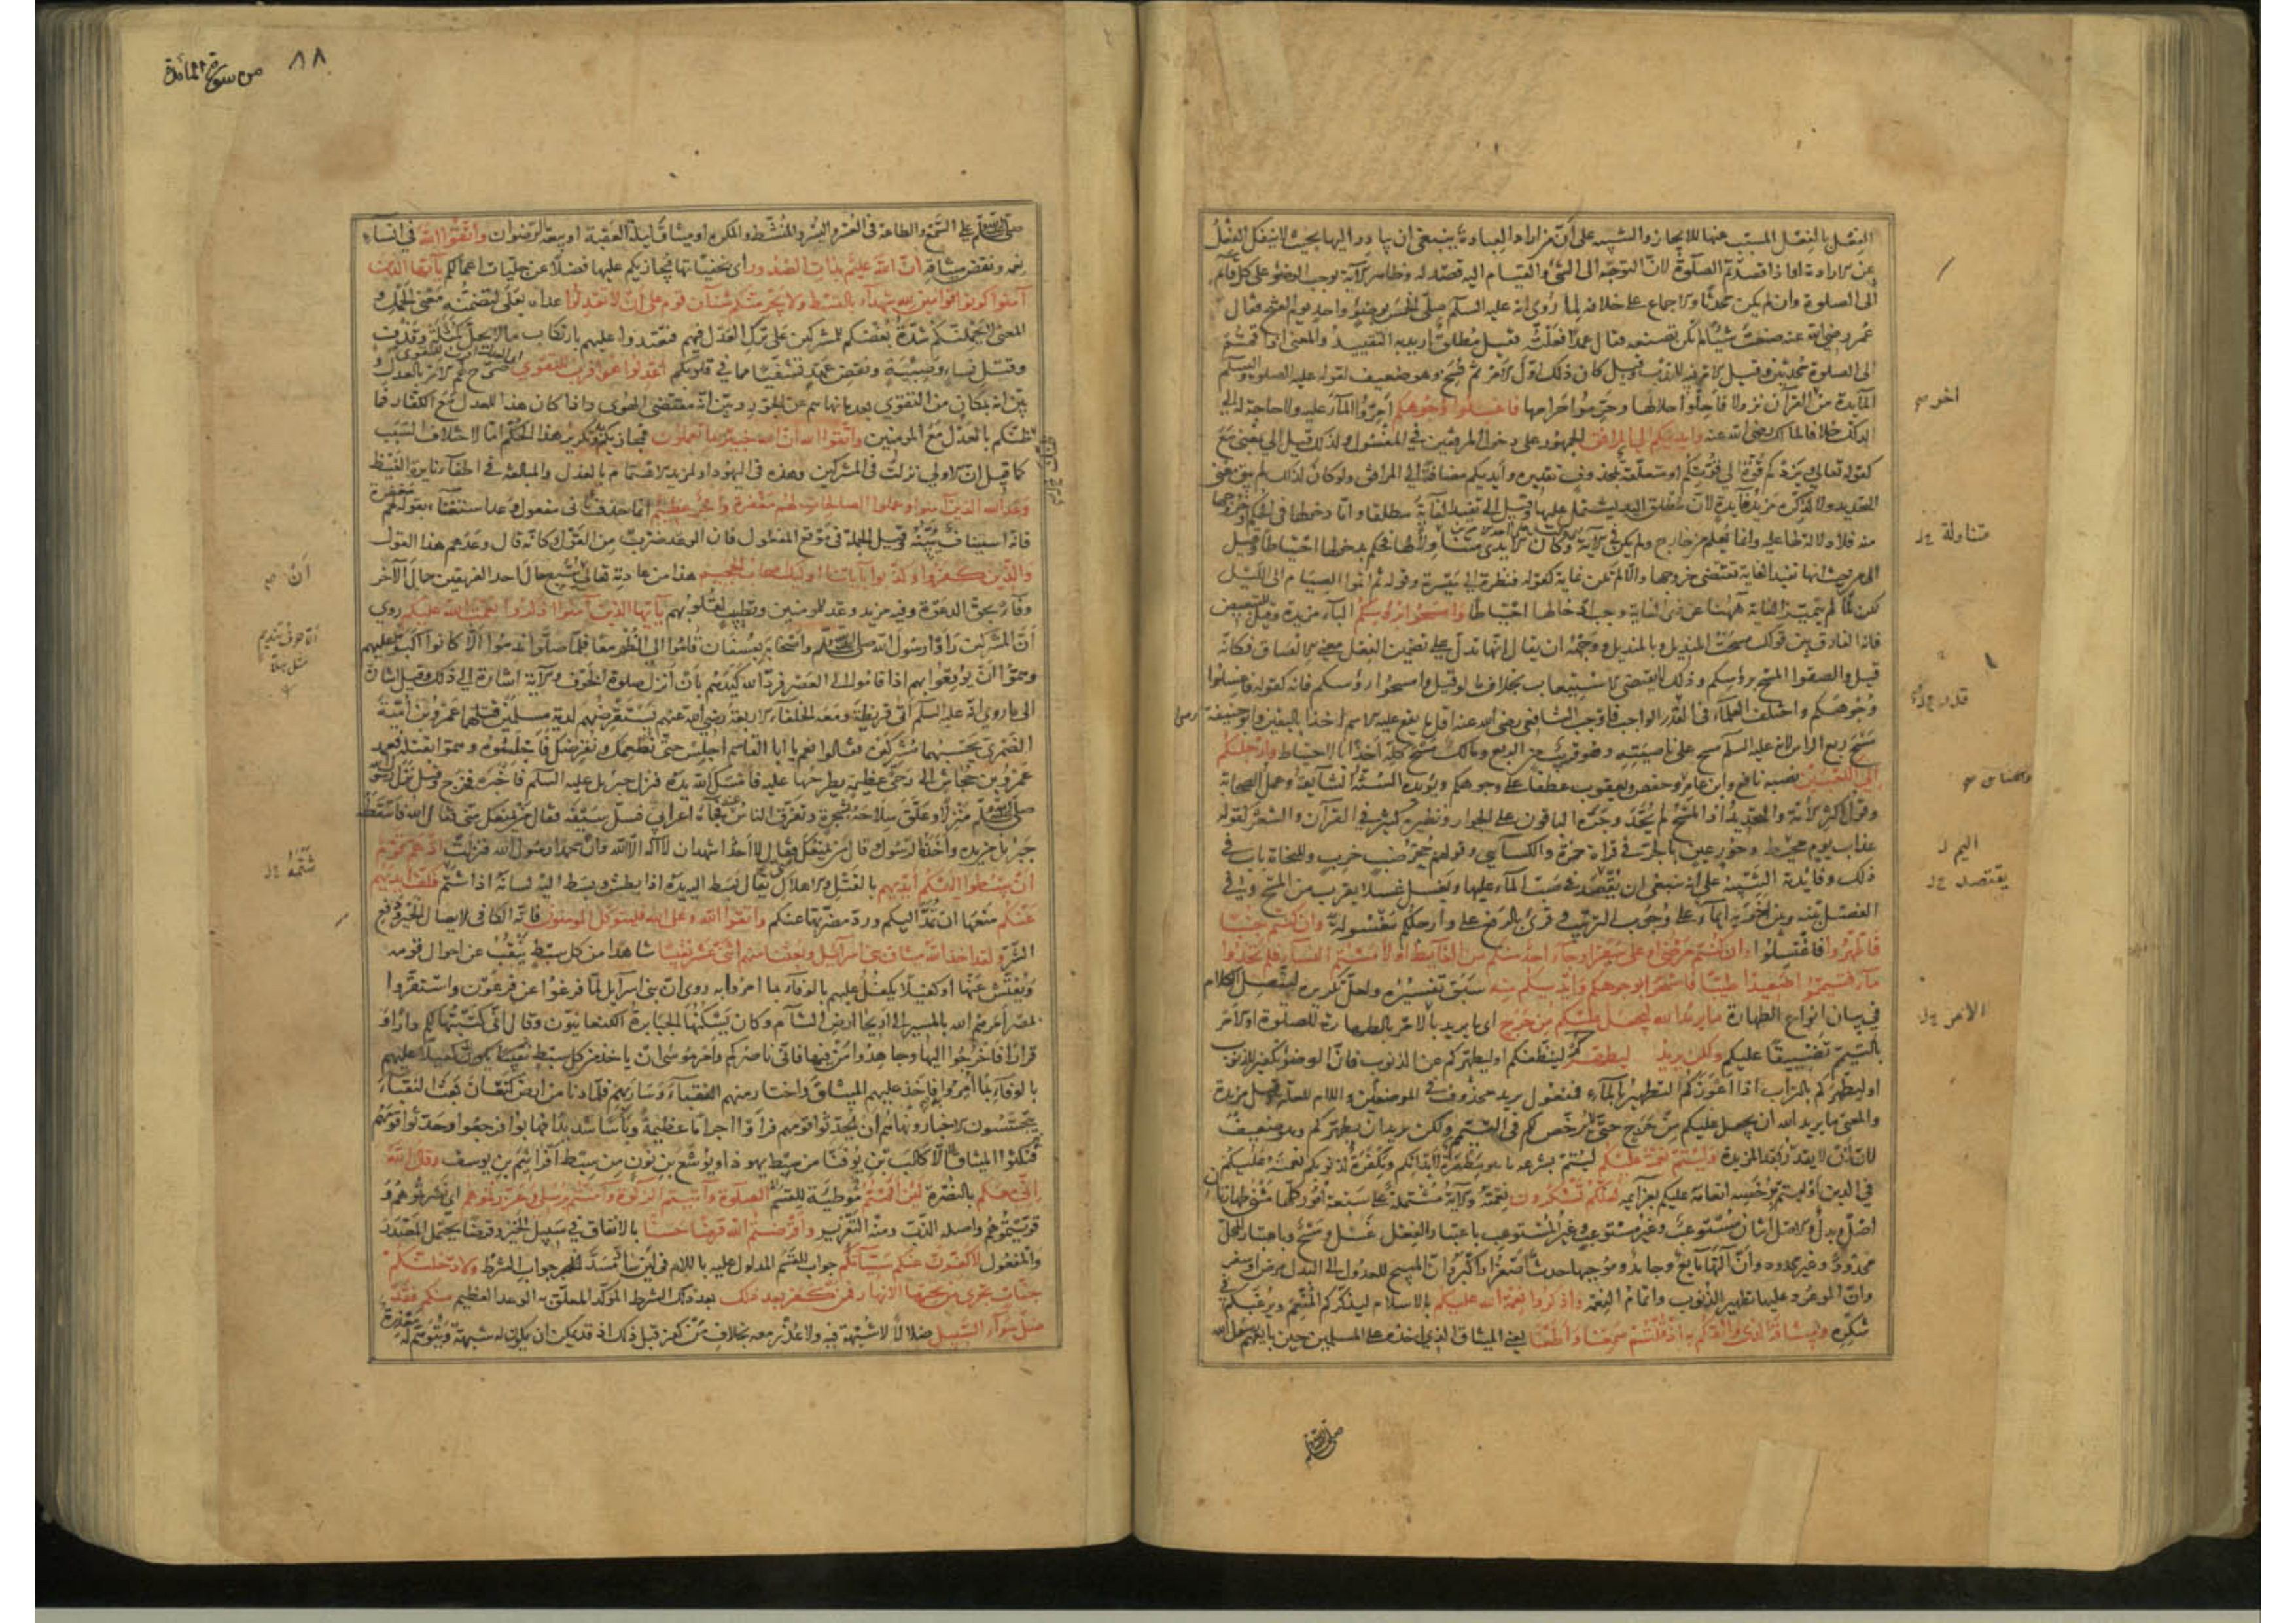 الفعل بالفعل المسبب عنها للايجاز والتنبيه على ان من اراد العبادة ينبغي ان يبادر اليها بحيث لا ينفك الفعل
عن الارادة او اذا قصدتم الصلوة لان التوجه الى الشئ والقيام اليه قصد له وظاهر الآية يوجب الوضوء على كل قائم
الى الصلوة وان لم يكن محدثا والاجماع على خلافه لما روى انه عليه السلم صلى الخمس بوضوء واحد يوم الفتح فقال
عمر رضي الله عنه صنعت شيئا لم تكن تصنعه فقال عمدا فعلته فقيل مطلق اريد به التقييد والمعنى اذا قمتم
الى الصلوة محدثين وقيل الامر فيه للندب وقيل كان ذلك اول الامر ثم نسخ وهو ضعيف لقوله عليه الصلوة والسلم
المائدة من القرآن نزولا فاحلوا حلالها وحرموا حرامها فاغسلوا وجوهكم امروا الماء عليه ولا حاجة الى
الدلك خلافا لمالك رضي الله عنه وايديكم الى المرافق الجمهور على دخول المرفقين في المغسول ولذلك قيل الى بمعنى مع
كقوله تعالى ويزدكم قوة الى قوتكم او متعلقة بمحذوف تقديره وايديكم مضافة الى المرافق ولو كان كذلك لم يبق معنى
التحديد ولا لذكره مزيد فايدة لان مطلق اليد يشتمل عليها وقيل الى تفيد الغاية مطلقا واما دخولها في الحكم او خروجها
منه فلا دلالة لها عليه وانما يعلم من خارج ولم يكن في الآية وكان الايدي متناولة لها فحكم بدخولها احتياطا وقيل
الى من حيث انها تفيد الغاية تقتضي خروجها والا لم تكن غاية كقوله فنظرة الى ميسرة وقوله ثم اتموا الصيام الى الليل
لكن لما لم يتميز الغاية ههنا عن ذي الغاية وجب ادخالها احتياطا وامسحوا برؤسكم الباء مزيدة وقيل للتبعيض
فانه الفارق بين قولك مسحت المنديل وبالمنديل ووجهه ان يقال انها تدل على تضمين الفعل معنى الالصاق فكانه
قيل والصقوا المسح برؤسكم وذلك لا يقتضي الاستيعاب بخلاف ما لو قيل وامسحوا رؤسكم فانه كقوله فاغسلوا
وجوهكم واختلف العلماء في القدر الواجب فاوجب الشافعي رضي الله عنه اقل ما يقع عليه الاسم اخذا باليقين وابو حنيفة
مسح ربع الراس لانه عليه السلم مسح على ناصيته وهو قريب من الربع ومالك مسح كله اخذا بالاحتياط وارجلكم
الى الكعبين نصبه نافع وابن عامر وحفص ويعقوب عطفا على وجوهكم ويؤيده السنة الشايعة وعمل الصحابة
وقول اكثر الائمة والتحديد اذ المسح لم يحد وجره الباقون على الجوار ونظيره كثير في القرآن والشعر كقوله
عذاب يوم محيط وحور عين بالجر في قراءة حمزة والكسائي وقولهم جحر ضب خرب وللنحاة باب في
ذلك وفايدة التنبيه على انه ينبغي ان يقتصد في صب الماء عليها ويغسل غسلا يقرب من المسح وفي
الفصل بينه وبين اخويه ايماء على وجوب الترتيب وقرئ بالرفع على وارجلكم مغسولة وان كنتم جنبا
فاطهروا فاغتسلوا وان كنتم مرضى او على سفر او جاء احد منكم من الغائط او لامستم النساء فلم تجدوا
ماء فتيمموا صعيدا طيبا فامسحوا بوجوهكم وايديكم منه سبق تفسيره ولعل تكريره ليتصل الكلام
في بيان انواع الطهارة ما يريد الله ليجعل عليكم من حرج اى ما يريد بالامر بالطهارة للصلوة او الامر
بالتيمم تضييقا عليكم ولكن يريد ليطهركم لينظفكم او ليطهركم عن الذنوب فان الوضوء تكفير للذنوب
او ليطهركم بالتراب اذا اعوزكم التطهير بالماء فمفعول يريد محذوف في الموضعين واللام للعلة وقيل مزيدة
والمعنى ما يريد الله ان يجعل عليكم من حرج حتى لا يرخص لكم في التيمم ولكن يريد ان يطهركم وهو ضعيف
لان ان لا يقدر بعد المزيدة وليتم نعمته عليكم ليتم بشرعه ما هو مطهرة لابدانكم ومكفرة لذنوبكم نعمته عليكم
في الدين او ليتم برخصه انعامه عليكم بعزائمه لعلكم تشكرون نعمته والآية مشتملة على سبعة امور كلها مثنى طهارتان
اصل وبدل والاصل اثنان مستوعب وغير مستوعب وغير المستوعب باعتبار الفعل غسل ومسح وباعتبار المحل
محدود وغير محدود وان آلتهما مايع وجامد وموجبهما حدث اصغر او اكبر وان المبيح للعدول الى البدل مرض او سفر
وان الموعود عليها تطهير الذنوب واتمام النعمة واذكروا نعمة الله عليكم بالاسلام ليذكركم المنعم ويرغبكم في
شكره وميثاقه الذي واثقكم به اذ قلتم سمعنا واطعنا يعنى الميثاق الذي اخذه على المسلمين حين بايعهم رسول الله
آخر
متناولة
اليم
يقتصد
الامر
صلى الله عليه وسلم
٨٨ من سورة المائدة
صلى الله عليه وسلم على السمع والطاعة في العسر واليسر والمنشط والمكره او ميثاق ليلة العقبة او بيعة الرضوان واتقوا الله في انساء
نعمه ونقض ميثاقه ان الله عليم بذات الصدور اى بخفياتها فيجازيكم عليها فضلا عن جليات اعمالكم يا ايها الذين
آمنوا كونوا قوامين لله شهداء بالقسط ولا يجرمنكم شنآن قوم على ان لا تعدلوا عداه بعلى لتضمنه معنى الحمل و
المعنى لا يحملنكم شدة بغضكم للمشركين على ترك العدل فيهم فتعتدوا عليهم بارتكاب ما لا يحل كمثلة وقذف
وقتل نساء وصبية ونقض عهد تشفيا مما في قلوبكم اعدلوا هو اقرب للتقوى صرح لهم الامر بالعدل و
بين انه بمكان من التقوى بعد ما نهاهم عن الجور وبين انه مقتضى الهوى واذا كان هذا للعدل مع الكفار فما
ظنكم بالعدل مع المؤمنين واتقوا الله ان الله خبير بما تعملون فيجازيكم وتكرير هذا الحكم اما لاختلاف السبب
كما قيل ان الاولى نزلت في المشركين وهذه في اليهود او لمزيد الاهتمام بالعدل والمبالغة في اطفاء نايرة الغيظ
وعد الله الذين آمنوا وعملوا الصالحات لهم مغفرة واجر عظيم انما حذف ثانى مفعولى وعد استغناء بقوله لهم مغفرة
فانه استيناف يبينه وقيل الجملة في موقع المفعول فان الوعد ضرب من القول كانه قال وعدهم هذا القول
والذين كفروا وكذبوا بآياتنا اولئك اصحاب الجحيم هذا من عادته تعالى يتبع حال احد الفريقين حال الآخر
وفاء بحق الدعوة وفيه مزيد وعد للمؤمنين وتطييب لقلوبهم يا ايها الذين آمنوا اذكروا نعمت الله عليكم روى
ان المشركين رأوا رسول الله صلى الله عليه وسلم واصحابه بعسفان قاموا الى الظهر معا فلما صلوا ندموا الا كانوا اكبوا عليهم
وهموا ان يوقعوا بهم اذا قاموا الى العصر فرد الله كيدهم بان انزل صلوة الخوف والآية اشارة الى ذلك وقيل اشارة
الى ما روى انه عليه السلم اتى قريظة ومعه الخلفاء الاربعة رضي الله عنهم يستقرضهم لدية مسلمين قتلهما عمرو بن امية
الضمري يحسبهما مشركين فقالوا نعم يا ابا القاسم اجلس حتى نطعمك ونقرضك فاجلسوه وهموا بقتله فعمد
عمرو بن جحاش الى رحى عظيمة يطرحها عليه فامسك الله يده فنزل جبريل عليه السلم فاخبره فخرج وقيل نزل رسول الله
صلى الله عليه وسلم منزلا وعلق سلاحه بشجرة وتفرق الناس عنه فجاءه اعرابي فسل سيفه فقال من يمنعك مني فقال الله فاسقطه
جبريل من يده واخذه الرسول قال من يمنعك مني فقال لا احد اشهد ان لا اله الا الله وان محمدا رسول الله فنزلت اذ هم قوم
ان يبسطوا اليكم ايديهم بالقتل والاهلاك يقال بسط اليه يده اذا بطش وبسط اليه لسانه اذا شتم فكف ايديهم
عنكم منعها ان تمد اليكم ورد مضرتها عنكم واتقوا الله وعلى الله فليتوكل المؤمنون فانه الكافى لايصال الخير ودفع
الشر ولقد اخذ الله ميثاق بنى اسرائيل وبعثنا منهم اثنى عشر نقيبا شاهدا من كل سبط ينقب عن احوال قومه
ويفتش عنها او كفيلا يكفل عليهم بالوفاء بما امروا به روى ان بنى اسرايل لما فرغوا عن فرعون واستقروا
بمصر امرهم الله بالمسير الى اريحا ارض الشام وكان يسكنها الجبابرة الكنعانيون وقال انى كتبتها لكم دارا و
قرارا فاخرجوا اليها وجاهدوا من فيها فانى ناصركم وامر موسى ان ياخذ من كل سبط نقيبا يكون كفيلا عليهم
بالوفاء بما امروا به فاخذ عليهم الميثاق واختار منهم النقباء وسار بهم فلما دنا من ارض كنعان بعث النقباء
يتجسسون الاخبار ونهاهم ان يحدثوا قومهم فراوا اجراما عظيمة وبأسا شديدا فهابوا فرجعوا وحدثوا قومهم
فنكثوا الميثاق الا كالب بن يوفنا من سبط يهوذا ويوشع بن نون من سبط افرائيم بن يوسف وقال الله
انى معكم بالنصرة لئن اقمتم توطية للقسم الصلوة وآتيتم الزكوة وآمنتم برسلى وعزرتموهم اى نصرتموهم و
قويتموهم واصله الذب ومنه التعزير واقرضتم الله قرضا حسنا بالانفاق في سبيل الخير وقرضا يحتمل المصدر
والمفعول لاكفرن عنكم سيئاتكم جواب للقسم المدلول عليه باللام في لئن سادّ مسد جواب الشرط ولادخلنكم
جنات تجرى من تحتها الانهار فمن كفر بعد ذلك بعد ذلك الشرط المؤكد المعلق به الوعد العظيم منكم فقد
ضل سواء السبيل ضلالا لا شبهة فيه ولا عذر معه بخلاف من كفر قبل ذلك اذ قد يمكن ان يكون له شبهة ويتوهم له معذرة
ان
شتمه